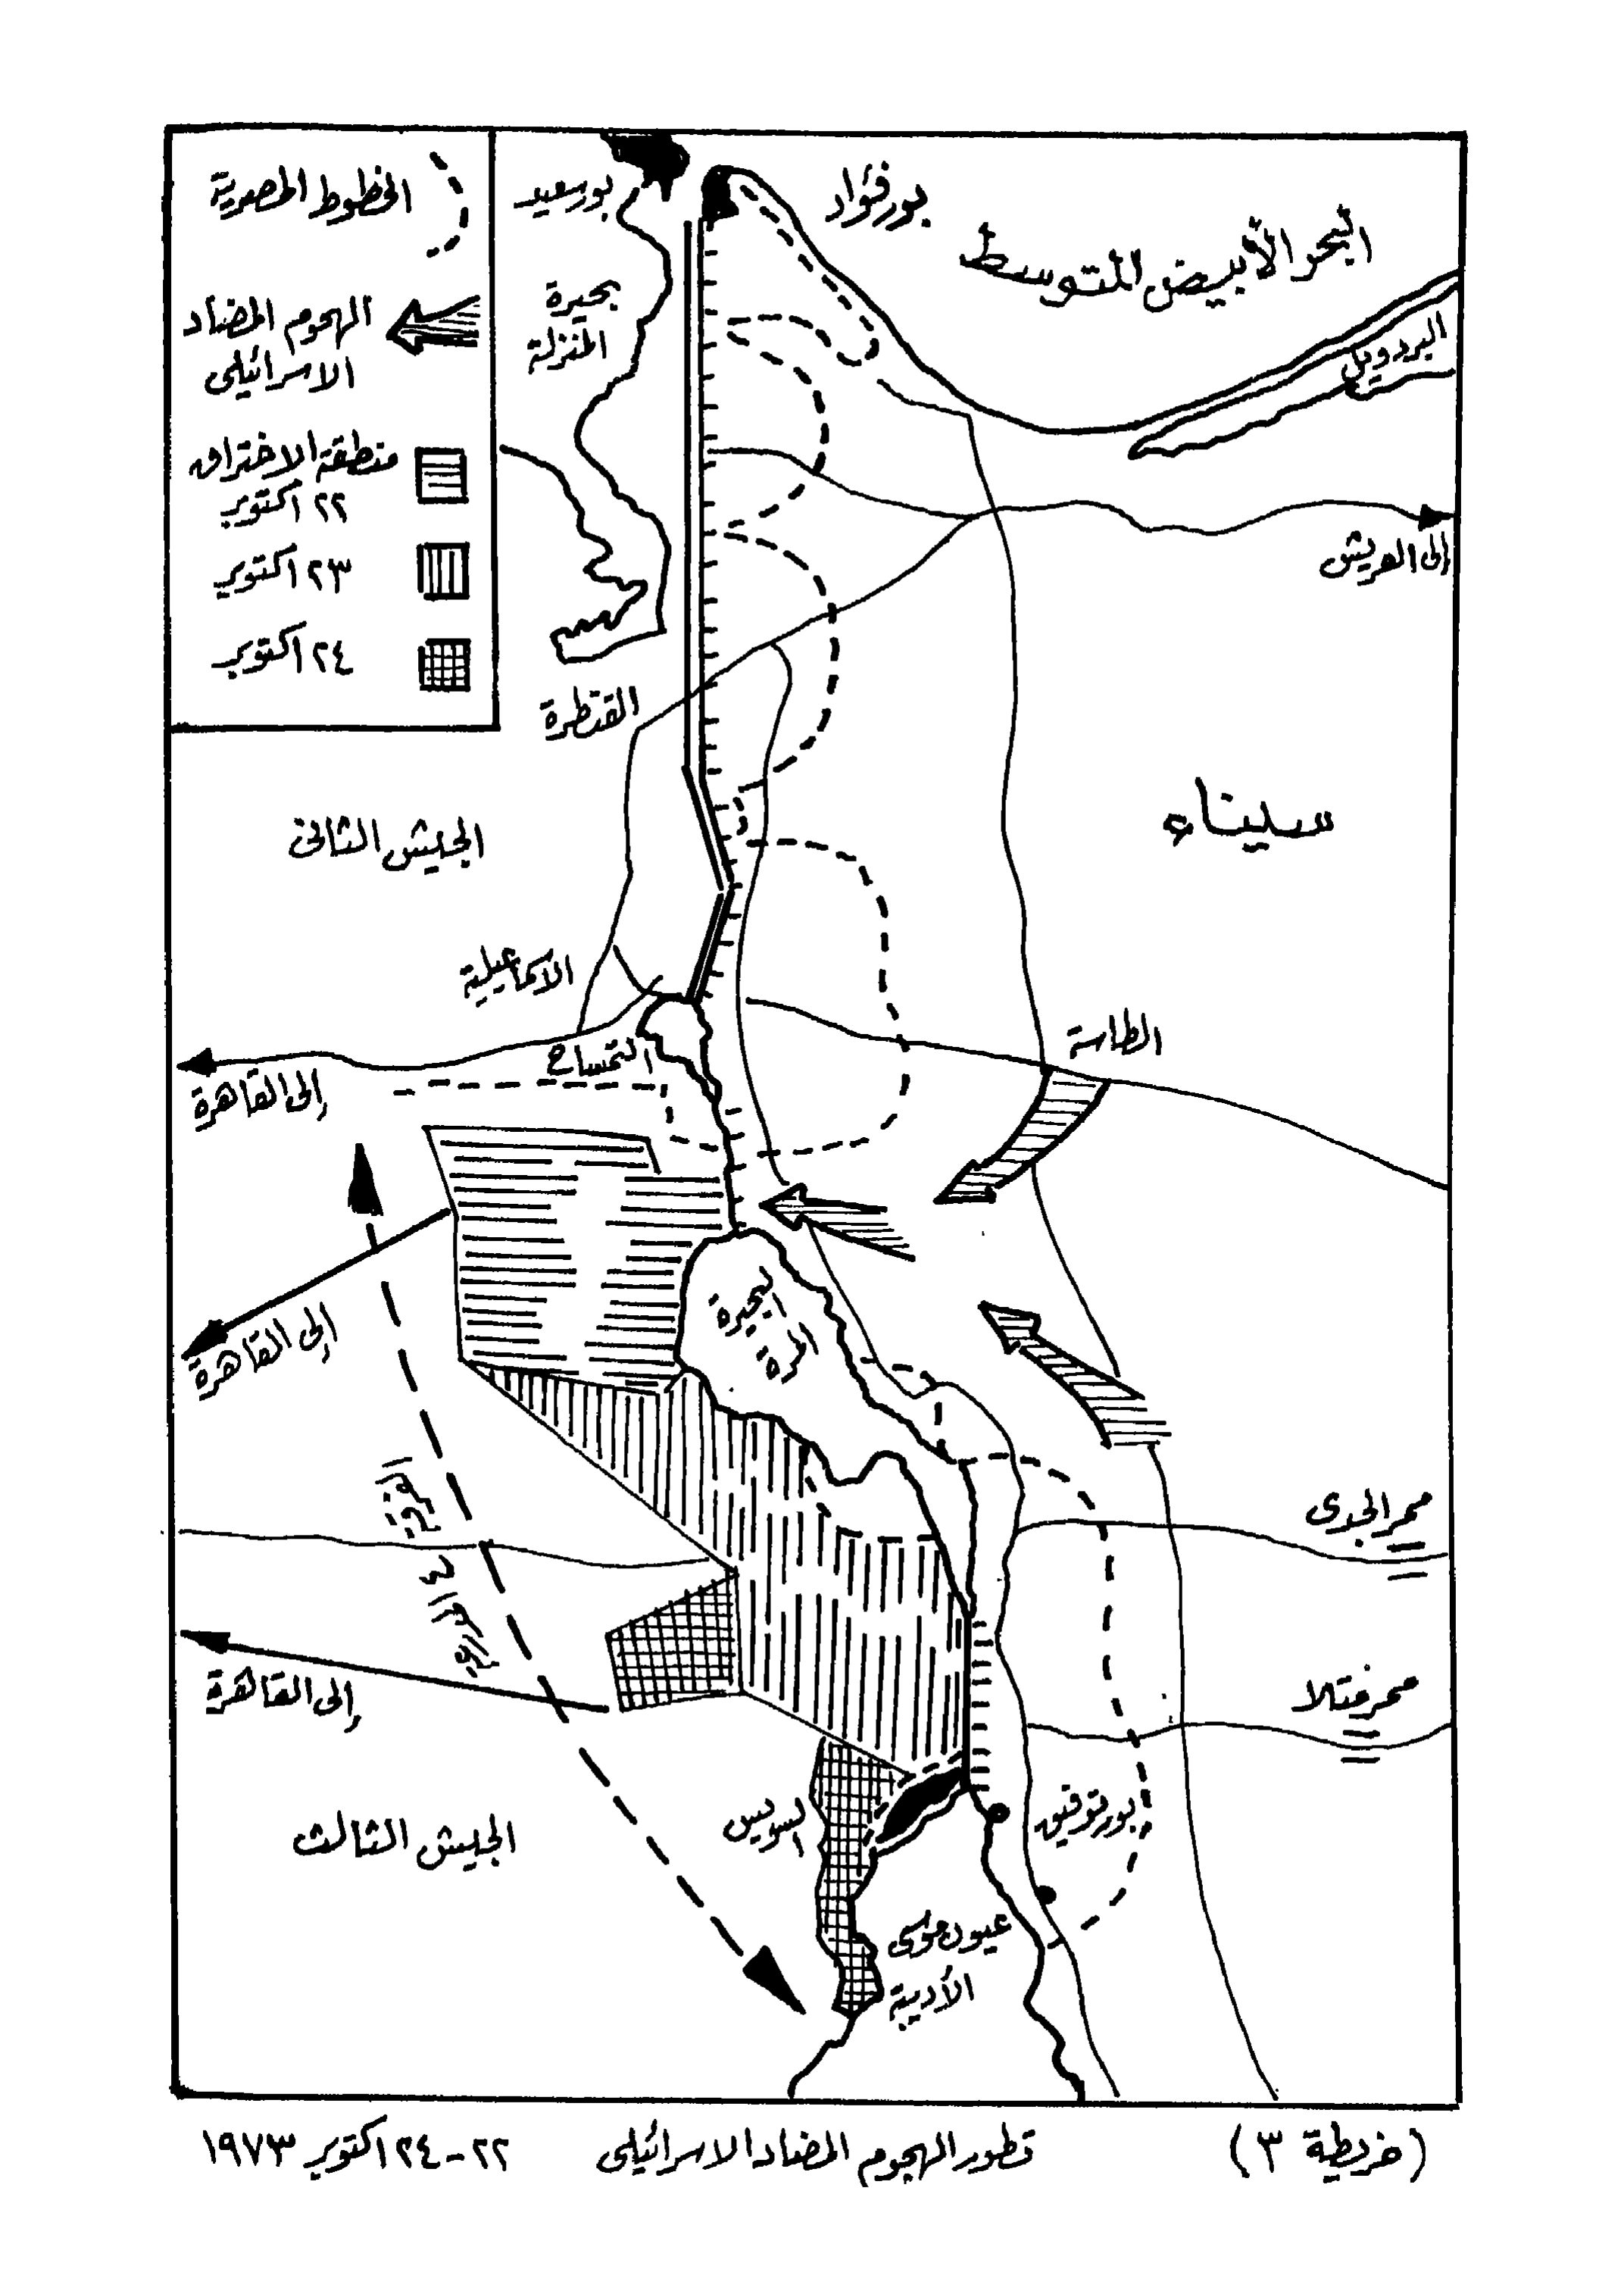 الخطوط المصرية
الهجوم المضاد
الاسرائيلى
منطقة الاختراق
٢٢ اكتوبر
٢٣ اكتوبر
٢٤ اكتوبر
بورسعيد
بورفؤاد
البحر الأبيض المتوسط
بحيرة
المنزلة
البردويل
إلى العريش
القنطرة
سيناء
الجيش الثانى
الاسماعيلية
الطاسة
التمساح
إلى القاهرة
البحيرة
المرة
إلى القاهرة
الفرقة
٤ المدرعة
ممر الجدى
ممر متلا
إلى القاهرة
السويس
بور توفيق
الجيش الثالث
عيون موسى
الأدبية
(خريطة ٣) تطور الهجوم المضاد الاسرائيلى ٢٢-٢٤ اكتوبر ١٩٧٣